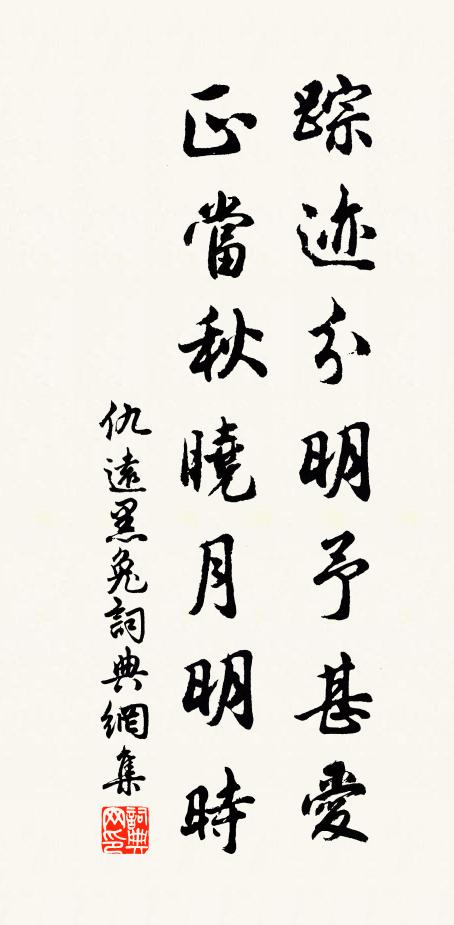 踪迹分明予甚愛
正當秋曉月明時
仇遠黑兔詞典網集
詞典网印